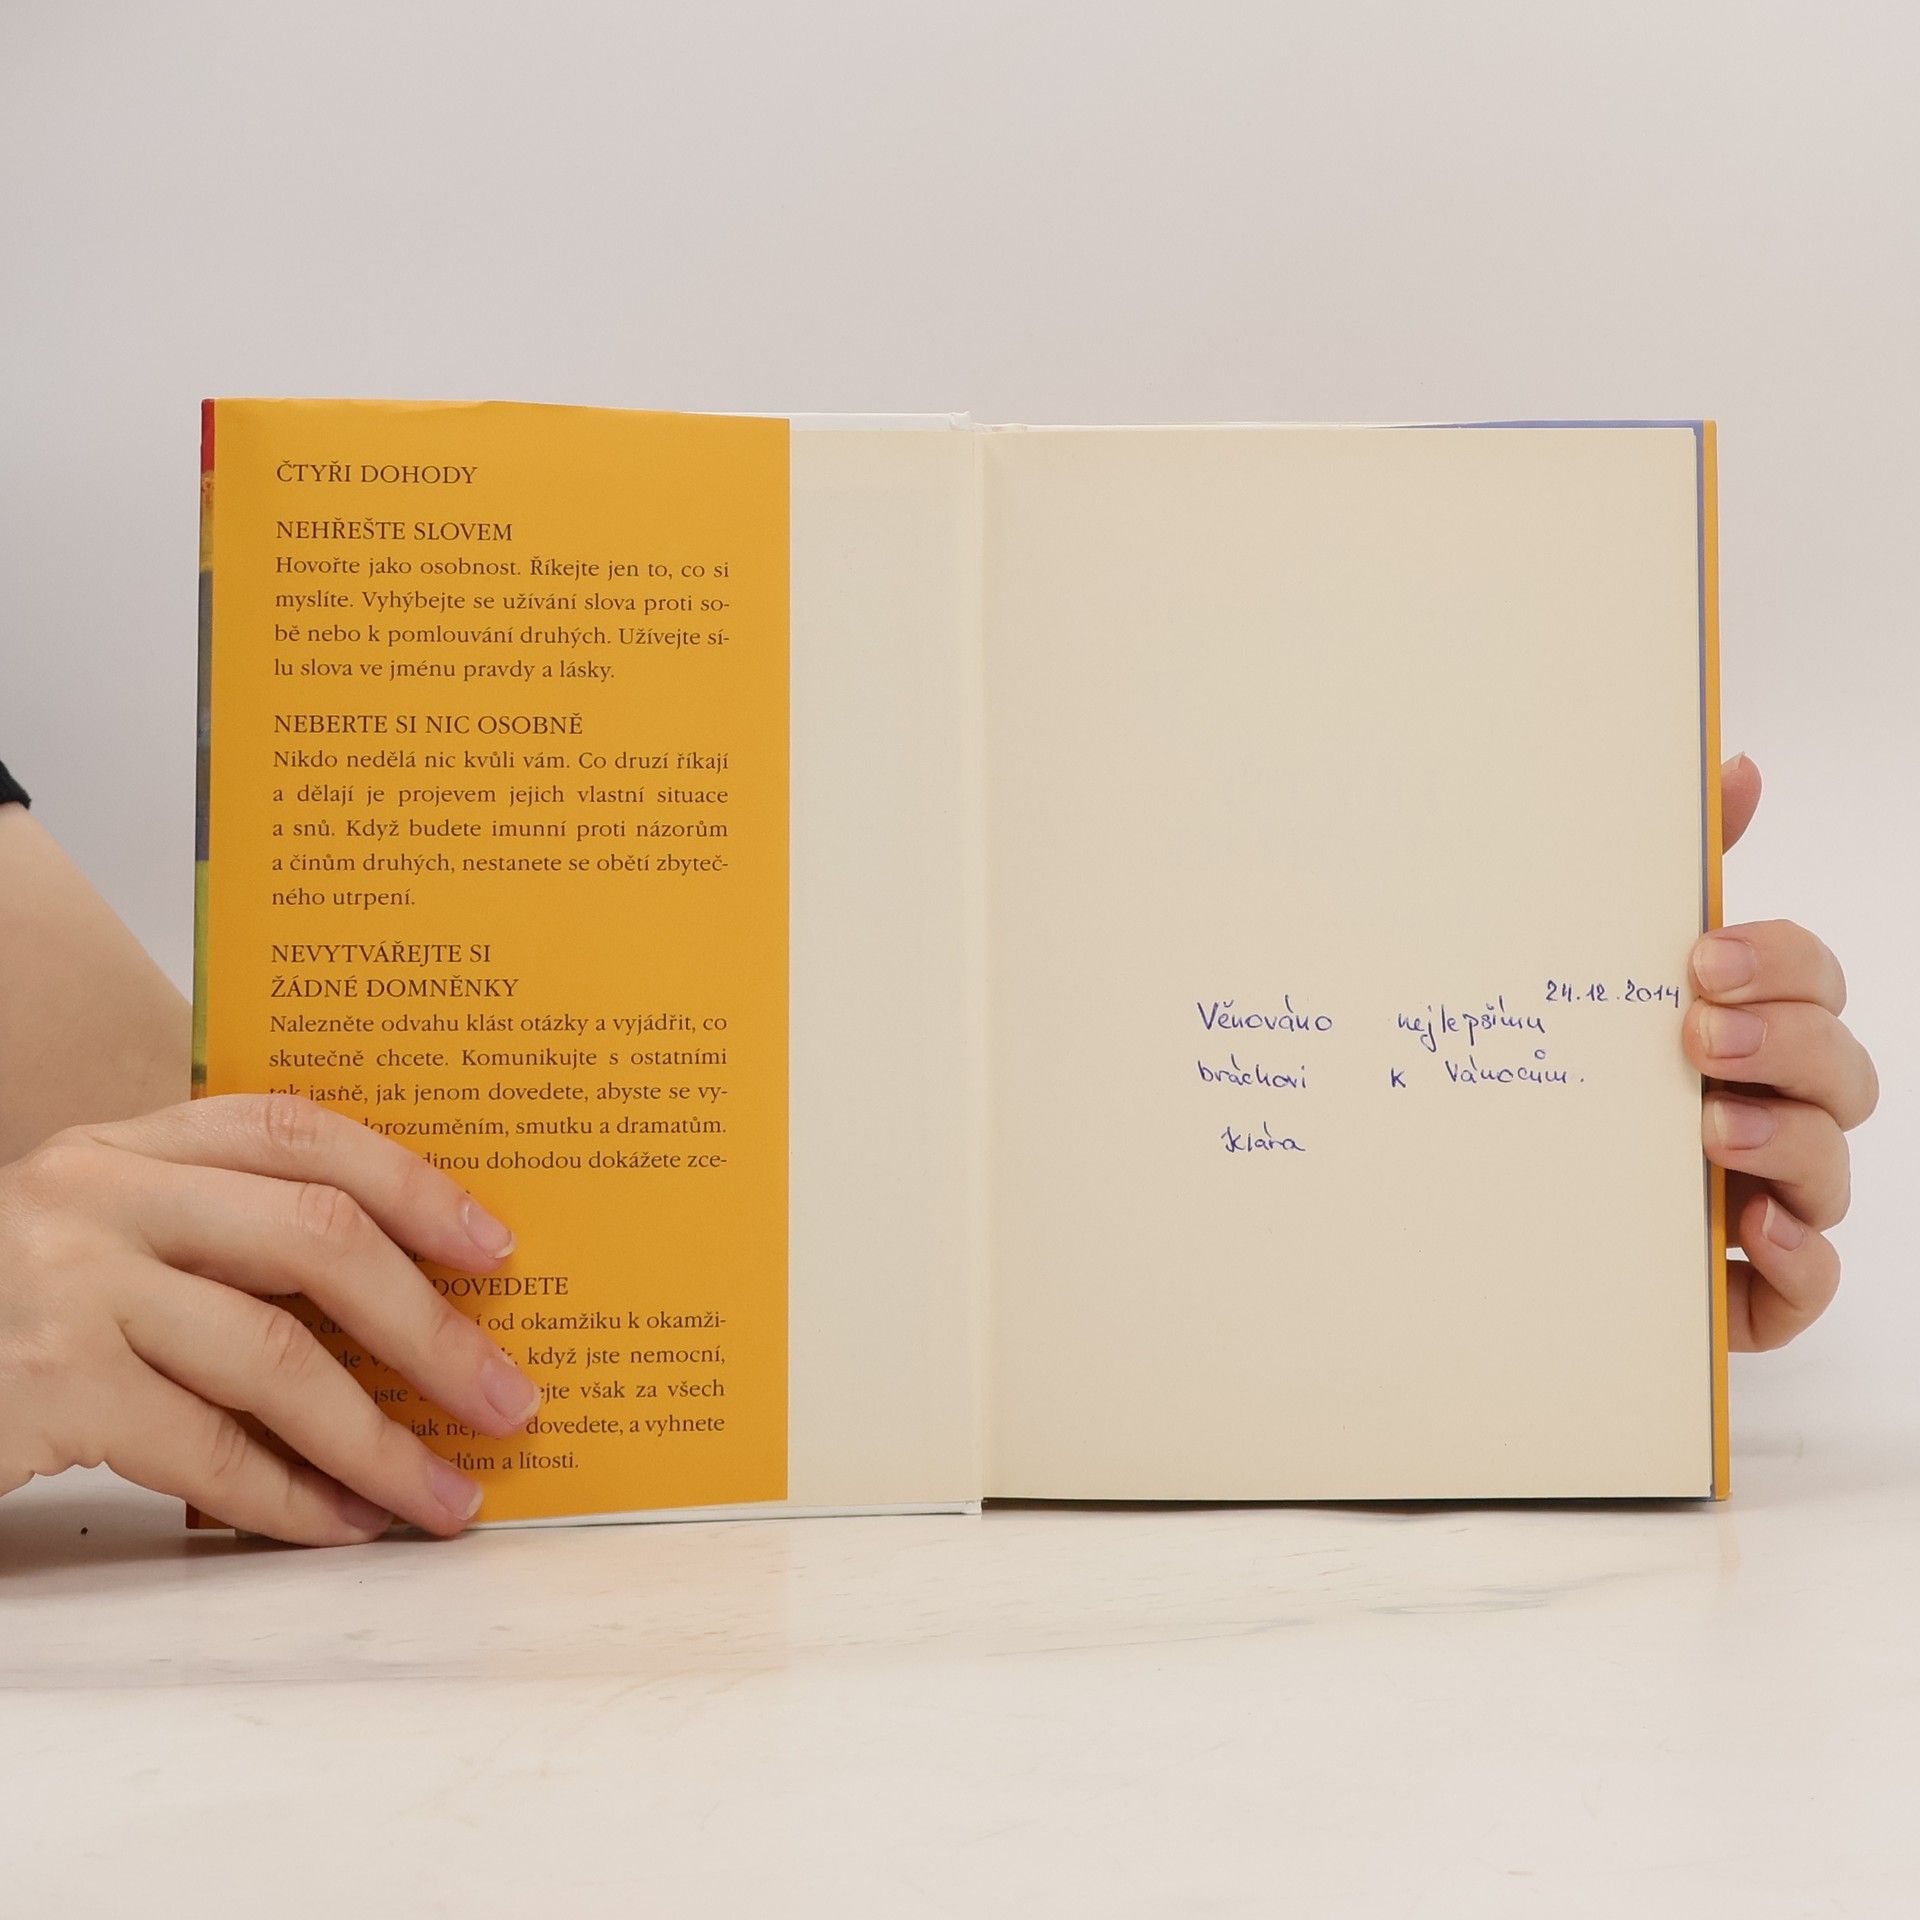 ČTYŘI DOHODY
NEHŘEŠTE SLOVEM
Hovořte jako osobnost. Říkejte jen to, co si
myslíte. Vyhýbejte se užívání slova proti so-
bě nebo k pomlouvání druhých. Užívejte sí-
lu slova ve jménu pravdy a lásky.
NEBERTE SI NIC OSOBNĚ
Nikdo nedělá nic kvůli vám. Co druzí říkají
a dělají je projevem jejich vlastní situace
a snů. Když budete imunní proti názorům
a činům druhých, nestanete se obětí zbyteč-
ného utrpení.
NEVYTVÁŘEJTE SI
ŽÁDNÉ DOMNĚNKY
Nalezněte odvahu klást otázky a vyjádřit, co
skutečně chcete. Komunikujte s ostatními
tak jasně, jak jenom dovedete, abyste se vy-
dorozuměním, smutku a dramatům.
dinou dohodou dokážete zce-
DOVEDETE
od okamžiku k okamži-
když jste nemocní,
jste však za všech
jak dovedete, a vyhnete
a lítosti.
24.12.2014
Věnováno nejlepšímu
bráchovi k Vánocům.
Klára